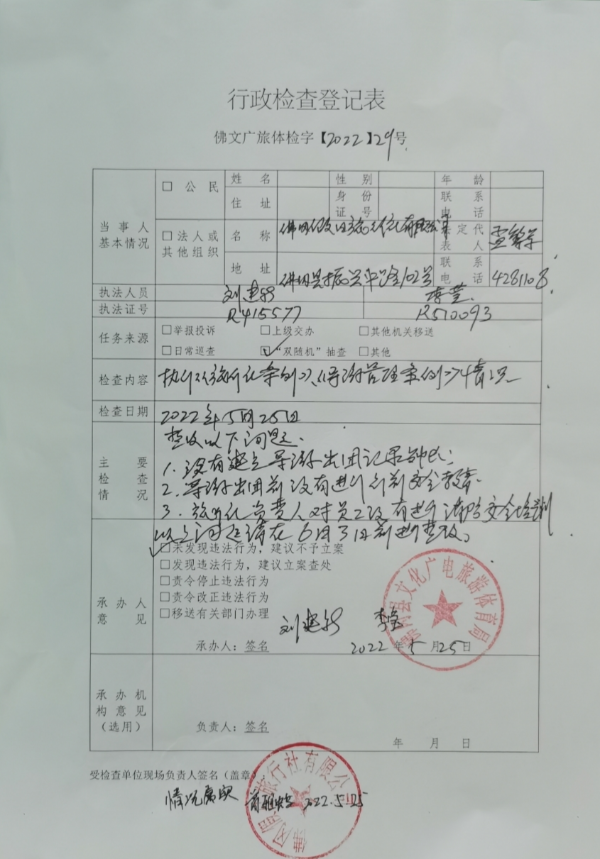 行政检查登记表
佛文广旅体检字【2022】29号
当事人基本情况
□公民 姓名 性别 年龄
住址 身份证号 联系电话
□法人或其他组织 名称 法定代表人
地址 联系电话 4281108
执法人员 刘建新 李莹
执法证号 R415577 R510093
任务来源 □举报投诉 □上级交办 □其他机关移送
□日常巡查 ☑“双随机”抽查 □其他
检查内容 执行《旅行社条例》、《导游管理条例》情况
检查日期 2022年5月25日
主要检查情况
查出以下问题:
1.没有建立导游出团记录
2.导游出团前没有进行行前安全教育
3.旅行社负责人对员工没有进行消防安全培训
以上问题请在6月3日前进行整改。
承办人意见
□未发现违法行为，建议不予立案
□发现违法行为，建议立案查处
□责令停止违法行为
□责令改正违法行为
□移送有关部门办理
刘建新 李莹
承办人：签名 2022年5月25日
佛冈县文化广电旅游体育局
承办机构意见（选用）
负责人：签名
年 月 日
受检查单位现场负责人签名（盖章）
情况属实 2022.5.25
旅行社有限公司